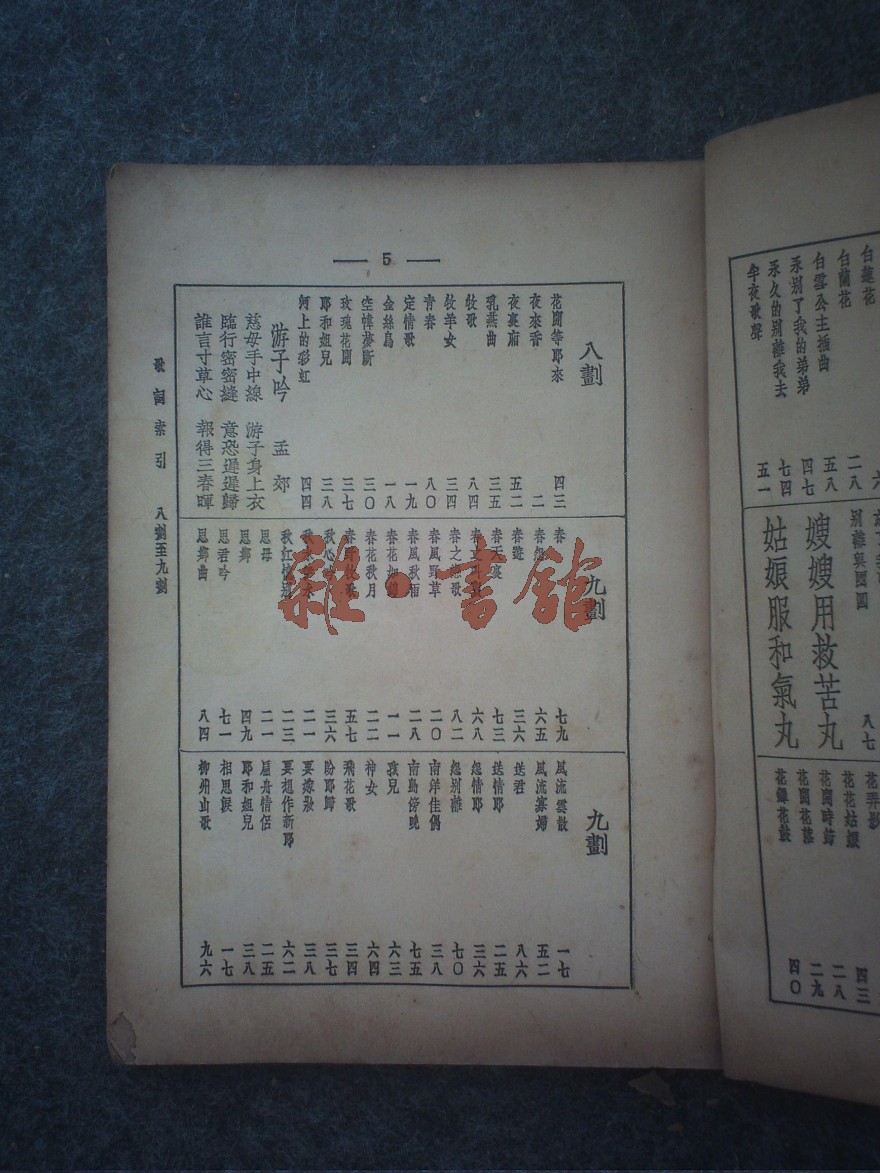 5
八劃
花開等郎來 四三
夜來香 二
夜裏廂 五二
乳燕曲 三五
牧歌 八四
牧羊女 三四
青春 八〇
定情歌 一九
金絲鳥 一八
空幃夢斷 三〇
玫瑰花開 三七
耶和妲兒 三八
河上的彩虹 四四
游子吟 孟郊
慈母手中線 游子身上衣
臨行密密縫 意恐遲遲歸
誰言寸草心 報得三春暉
九劃
春 七九
春 六五
春遊 三六
春天 七三
春 六八
春之戀歌 八二
春風野草 二〇
春風秋雨 二八
春花 一一
春花秋月 二二
春 牧歌 五七
秋心 三六
二一
秋紅 二三
思母 二一
思鄉 四九
思君吟 七一
思鄉曲 八四
九劃
風流雲散 一七
風流寡婦 五二
送君 八六
送情郎 二五
怨情郎 三六
怨别離 七〇
南洋佳偶 三八
南島傍晚 七五
孩兒 六三
神女 六四
飛花歌 三四
盼郎歸 三七
要嫁妝 三八
要想作新郎 六二
扁舟情侶 二五
耶和妲兒 三八
相思淚 一七
柳州山歌 九六
歌詞索引 八劃至九劃
雜·書館
白蓮花
白蘭花 二八
白雪公主插曲 五八
永别了我的弟弟 四七
永久的别離我去 七四
半夜歌聲 五一
别離與團圓 八七
嫂嫂用救苦丸
姑娘服和氣丸
花弄影 四三
花花姑娘 二八
花開時節 二九
花開花落
花鼓 四〇